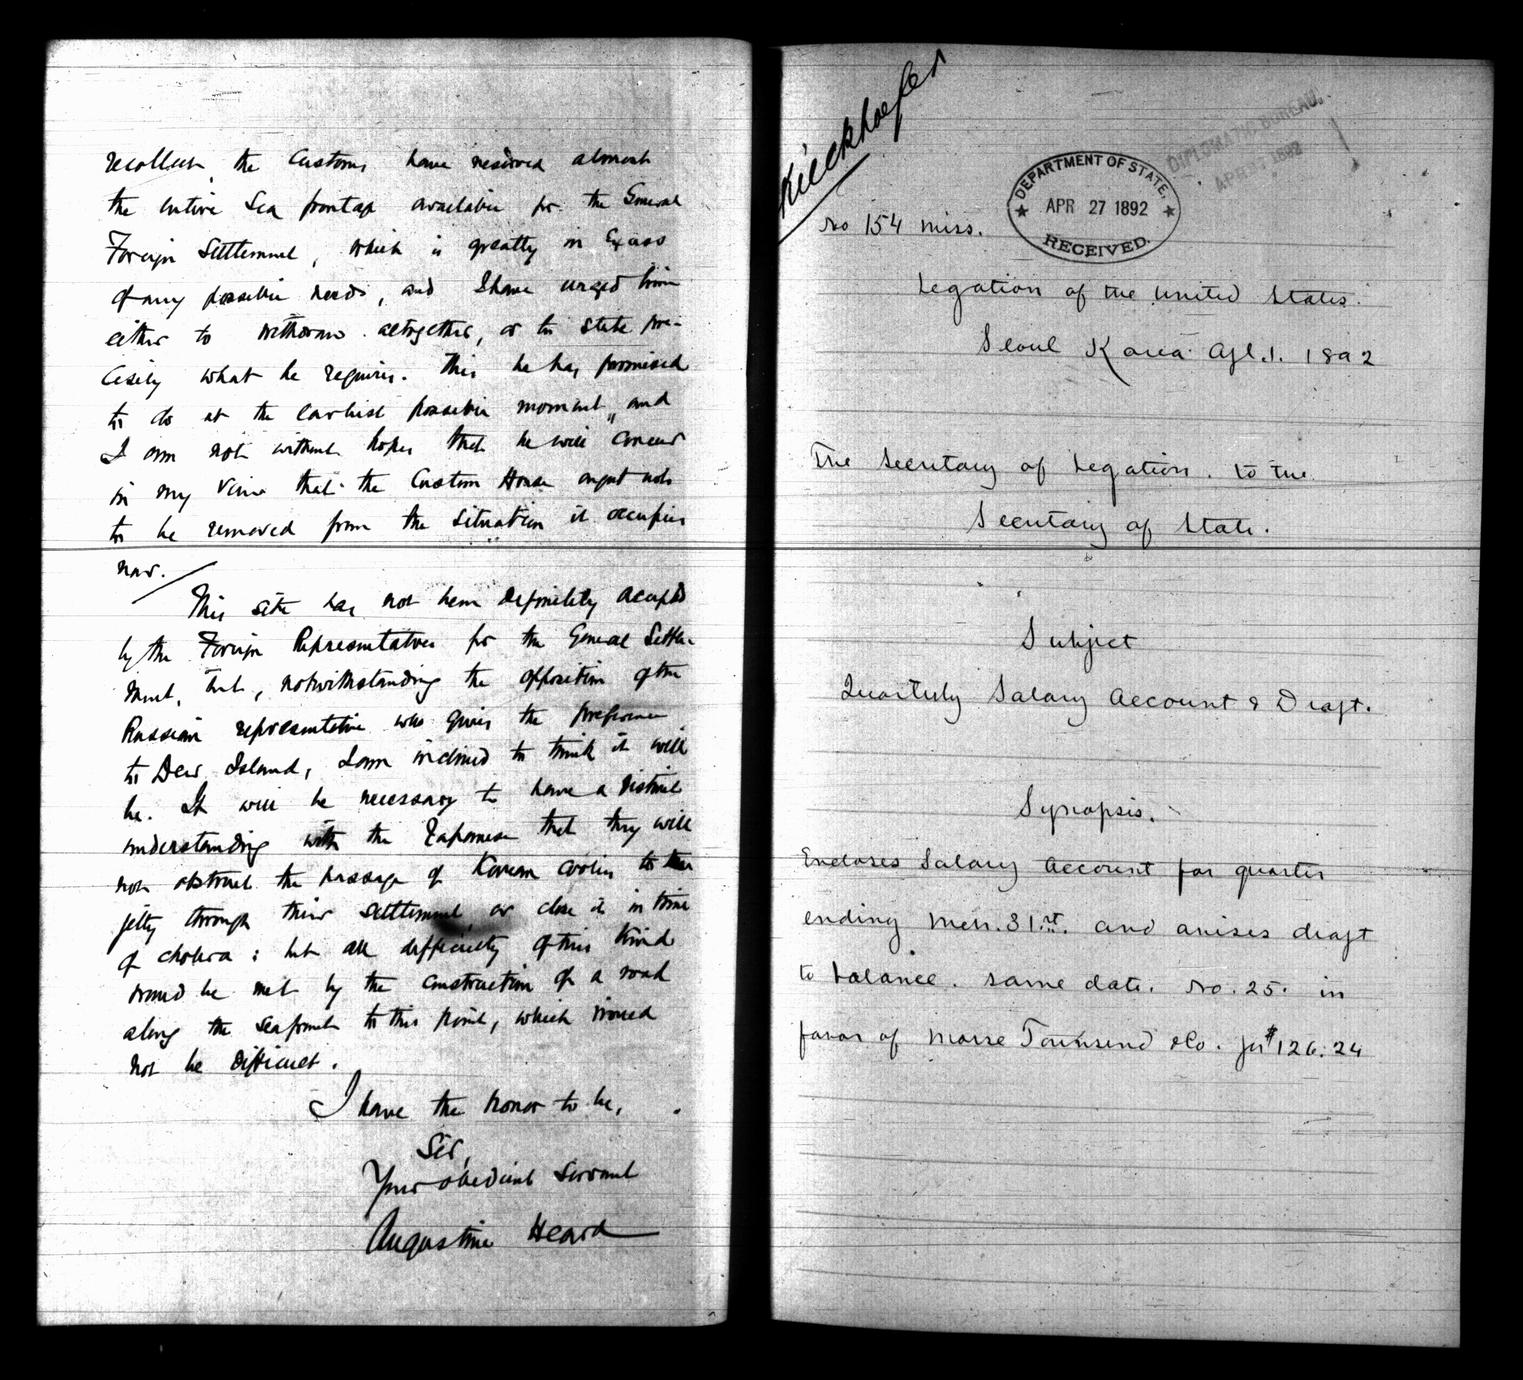 recollect, the Customs have reserved almost
the entire Sea frontage available for the General
Foreign Settlement, which is greatly in Excess
of any possible needs, and I have urged him
either to withdraw altogether, or to state pre-
cisely what he requires. This he has promised
to do at the earliest possible moment, and
I am not without hopes that he will concur
in my view that the Custom House ought not
to be removed from the situation it occupies
now.
This site has not been definitely accepted
by the Foreign Representatives for the General Settle-
ment, but, notwithstanding the opposition of the
Russian representative who gives the preference
to Deer Island, I am inclined to think it will
be. It will be necessary to have a distinct
understanding with the Japanese that they will
not obstruct the passage of Korean coolies to the
jetty through their settlement, or close it in time
of cholera: but all difficulty of this kind
would be met by the construction of a road
along the seafront to this point, which would
not be difficult.
I have the honor to be,
Sir,
Your obedient Servant
Augustine Heard
Kieckhoefer
DIPLOMATIC BUREAU.
APR 27 1892
DEPARTMENT OF STATE.
APR 27 1892
RECEIVED.
No 154 miss.
Legation of the United States.
Seoul Korea Apl. 1. 1892
The Secretary of Legation. to the
Secretary of State.
Subject
Quarterly Salary Account & Draft.
Synopsis.
Encloses Salary Account for quarter
ending Mch. 31st. and advises draft
to balance. same date. No. 25. in
favor of Morse Townsend & Co. for $126.24